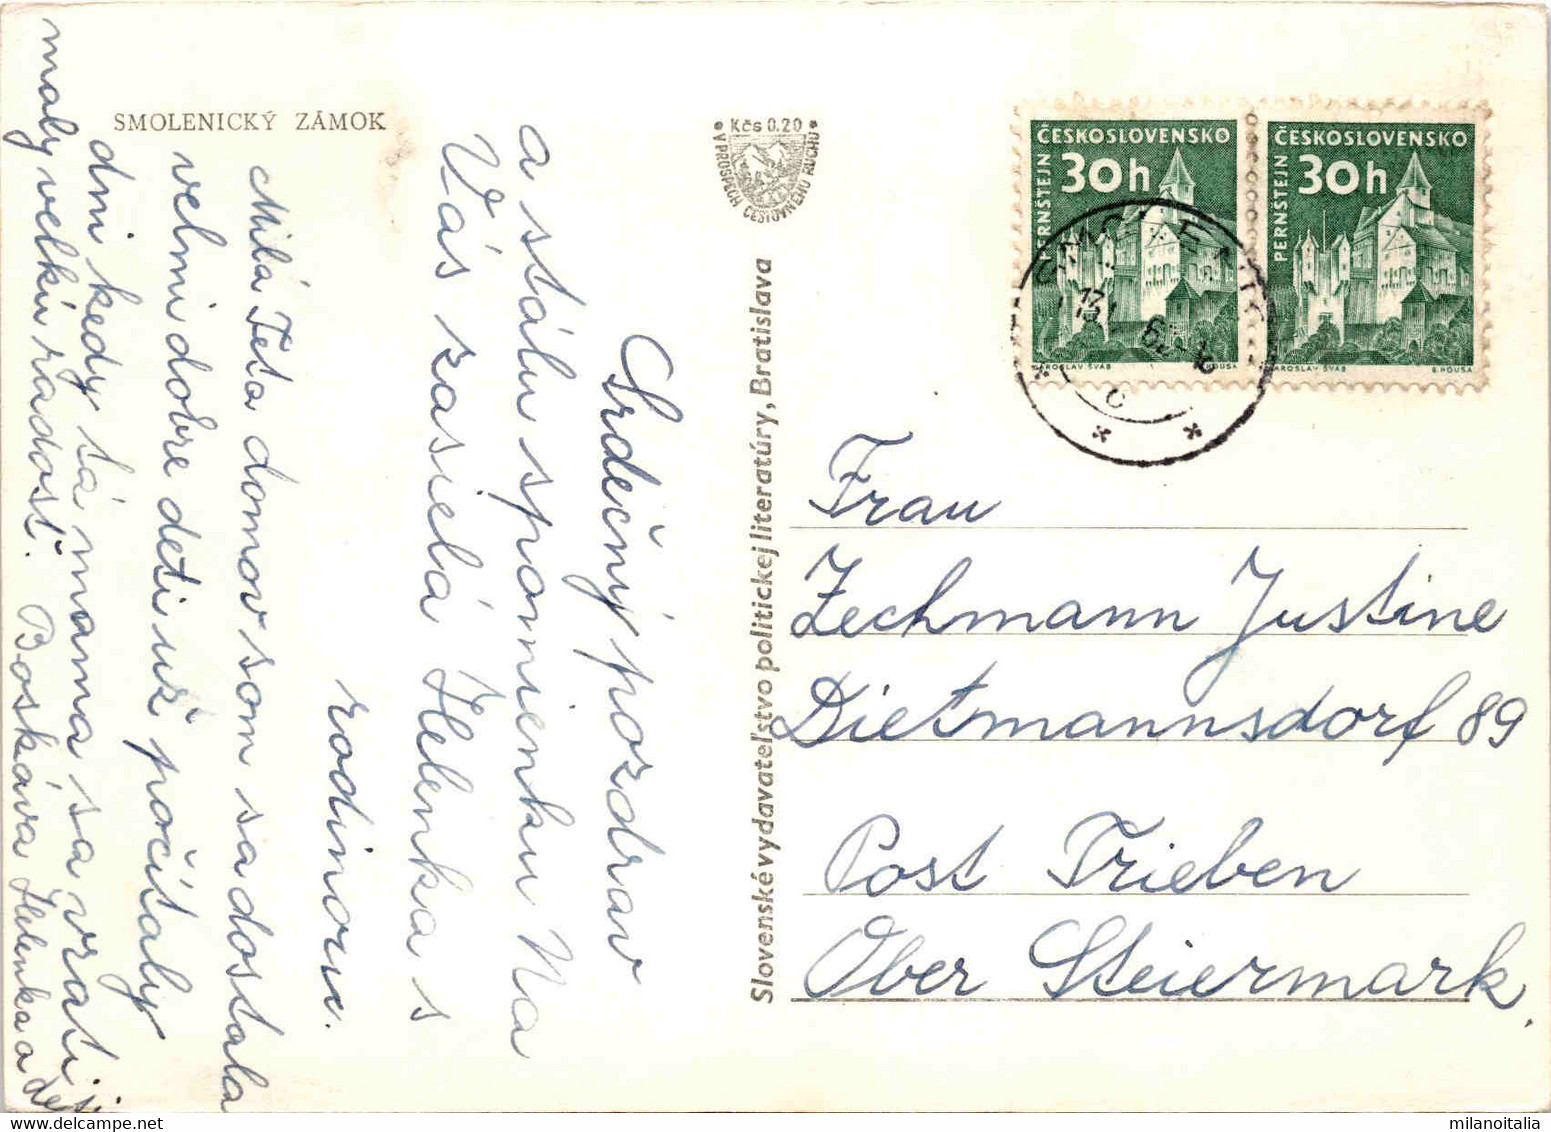 SMOLENICKÝ ZÁMOK
Srdečný pozdrav
a stálu spomienku Na
Vás zasiela Helenka s
rodinou.
Milá Teta domov som sa dostala
velmi dobre deti už počítaly
dni kedy sa mama sa vrati
maly velkú radosť. Boskáva Helenka a
* Kčs 0.20 *
V PROSPECH CESTOVNÉHO RUCHU
Slovenské vydavateľstvo politickej literatúry, Bratislava
ČESKOSLOVENSKO
30h
PERNŠTEJN
JAROSLAV ŠVÁB B. HOUSA
ČESKOSLOVENSKO
30h
PERNŠTEJN
JAROSLAV ŠVÁB B. HOUSA
Frau
Zechmann Justine
Dietmannsdorf 89
Post Trieben
Ober Steiermark.
milanoitalia